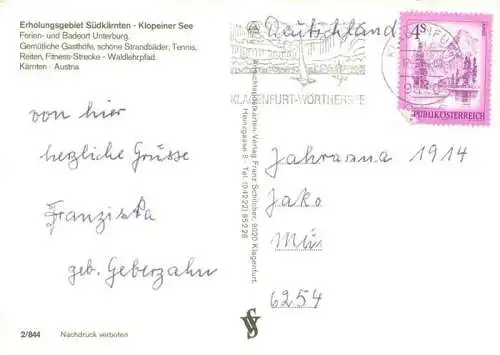 Erholungsgebiet Südkärnten - Klopeiner See
Ferien- und Badeort Unterburg.
Gemütliche Gasthöfe, schöne Strandbäder, Tennis,
Reiten, Fitness-Strecke - Waldlehrpfad.
Kärnten - Austria
von hier
herzliche Grüsse
Franziska
geb. Geberzahn
2/844 Nachdruck verboten
Ansichtspostkarten-Verlag Franz Schilcher, 9020 Klagenfurt,
Heinzgasse 8 - Tel. (0 42 22) 85 2 28
Deutschland
KLAGENFURT-WÖRTHERSEE
4S
REPUBLIK ÖSTERREICH
Jahrgang 1914
Jako
Mün
6254